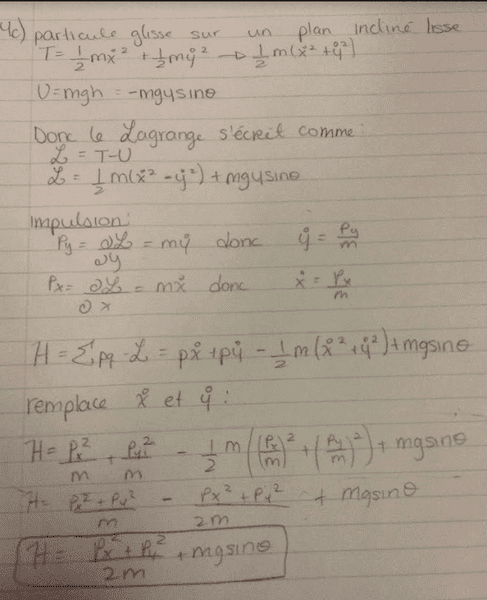 4c) particule glisse sur un plan incliné lisse
T = 1/2 mẋ² + 1/2 mẏ² → 1/2 m(ẋ² + ẏ²)
U = mgh = -mgysinθ
Donc le Lagrange s'écrit comme:
ℒ = T-U
ℒ = 1/2 m(ẋ² - ẏ²) + mgysinθ
Impulsion:
Py = ∂ℒ/∂y = mẏ donc ẏ = Py/m
Px = ∂ℒ/∂x = mẋ donc ẋ = Px/m
H = Σpq - ℒ = pẋ + pẏ - 1/2 m(ẋ² + ẏ²) + mgsinθ
remplace ẋ et ẏ :
H = Px²/m + Py²/m - 1/2 m((Px/m)² + (Py/m)²) + mgsinθ
H = Px² + Py²/m - Px² + Py²/2m + mgsinθ
H = Px² + Py²/2m + mgsinθ